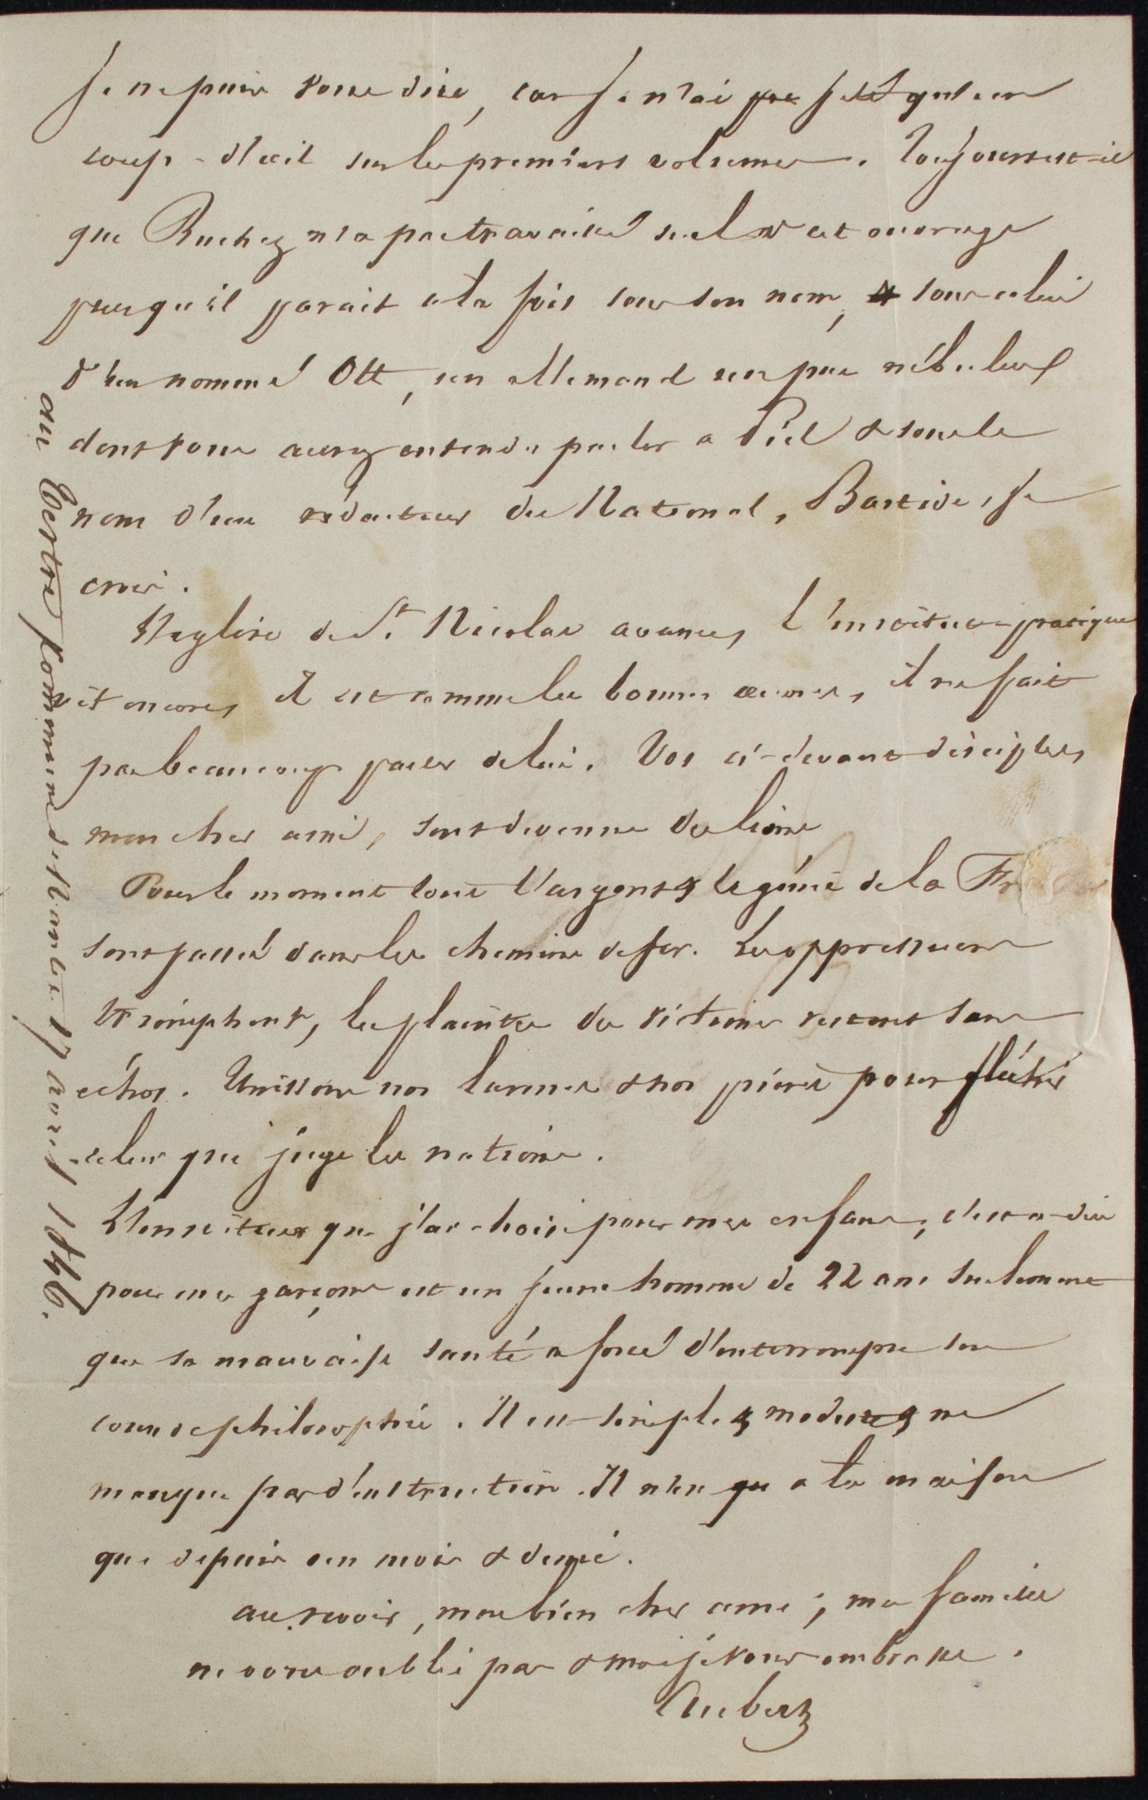 Je ne puis vous dire, car je n'ai pas jeté qu'un
coup-d'œil sur les premiers volumes. Toujours est-il
que Buchez n'a pas travaillé seul à cet ouvrage
puisqu'il parait à la fois sous son nom, & sous celui
d'un nommé Ott, un allemand un peu nébuleux
dont vous aurez entendu parler à Piel & sous le
nom d'un rédacteur du National, Bastide, je
crois.
L'église de St. Nicolas avance, l'institut pratique
vit encore, il est comme les bonnes œuvres, il ne fait
pas beaucoup parler de lui. Vos ci-devant disciples,
mon cher ami, sont devenus des lions
Pour le moment tout l'argent & le génie de la Fr
sont passés dans les chemins de fer. Les oppresseurs
triomphent, les plaintes des victimes restent sans
échos. Unissons nos larmes & nos pières pour fléchir
celui qui juge les nations.
L'instituteur que j'ai choisi pour mes enfans, c'est-à-dire
pour mes garçons est un jeune homme de 22 ans seulement
que sa mauvaise santé a forcé d'interrompre son
cours de philosophie. Il est simple & modeste & ne
manque pas d'instruction. Il n'est qu à la maison
que depuis un mois & demi.
au revoir, mon bien cher ami; ma famille
ne vous oublie pas & moi je vous embrasse.
Aubert
au Tertre commune de Nantes 17 avril 1846.